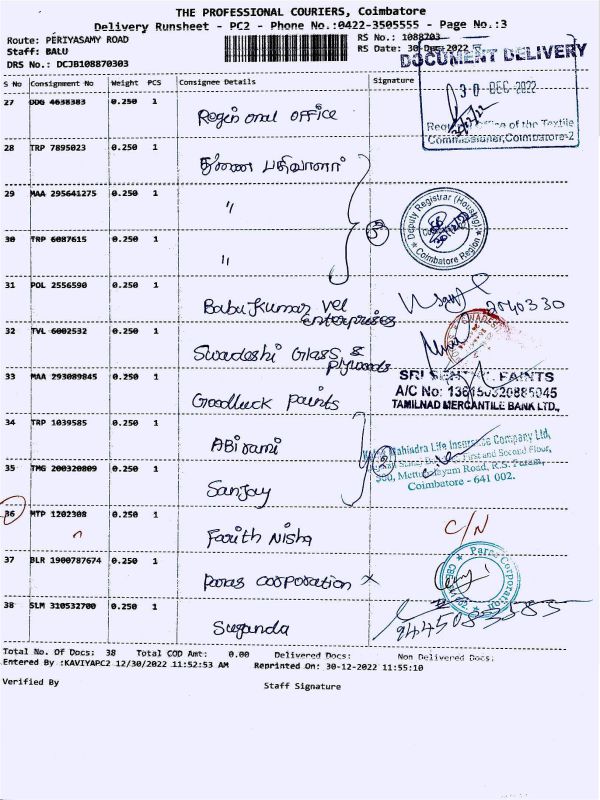 THE PROFESSIONAL COURIERS, Coimbatore
Delivery Runsheet - PC2 - Phone No.:0422-3505555 - Page No.:3
Route: PERIYASAMY ROAD
RS No.: 1088703
Staff: BALU
RS Date: 30-Dec-2022
DRS No.: DCJB108870303
DOCUMENT DELIVERY
30 DEC 2022
Office of the Textile
Commissioner, Coimbatore-2
S No Consignment No Weight PCS Consignee Details Signature
27 ODG 4638383 0.250 1 Regional office
28 TRP 7895023 0.250 1
29 MAA 295641275 0.250 1 "
Deputy Registrar (Housing)
Coimbatore Region
30 TRP 6087615 0.250 1 "
31 POL 2556590 0.250 1 Babu Kumar vel
enterprises
2540330
32 TVL 6002532 0.250 1 Swadeshi Glass &
plywoods
33 MAA 293089845 0.250 1 Goodluck paints
PAINTS
A/C No: 136150320885045
TAMILNAD MERCANTILE BANK LTD.,
34 TRP 1039585 0.250 1 ABirami
Mahindra Life Insurance Company Ltd,
First and Second Floor,
Road, R.S. Puram,
Coimbatore - 641 002.
35 TMG 200320809 0.250 1 Sanjay
36 MTP 1202308 0.250 1 Farith Nisha
C/N
37 BLR 1900787674 0.250 1 Paras corporation x
Paras Corporation
38 SLM 310532700 0.250 1 Suganda
Total No. Of Docs: 38 Total COD Amt: 0.00 Delivered Docs: Non Delivered Docs:
Entered By :KAVIYAPC2 12/30/2022 11:52:53 AM Reprinted On: 30-12-2022 11:55:10
Verified By
Staff Signature